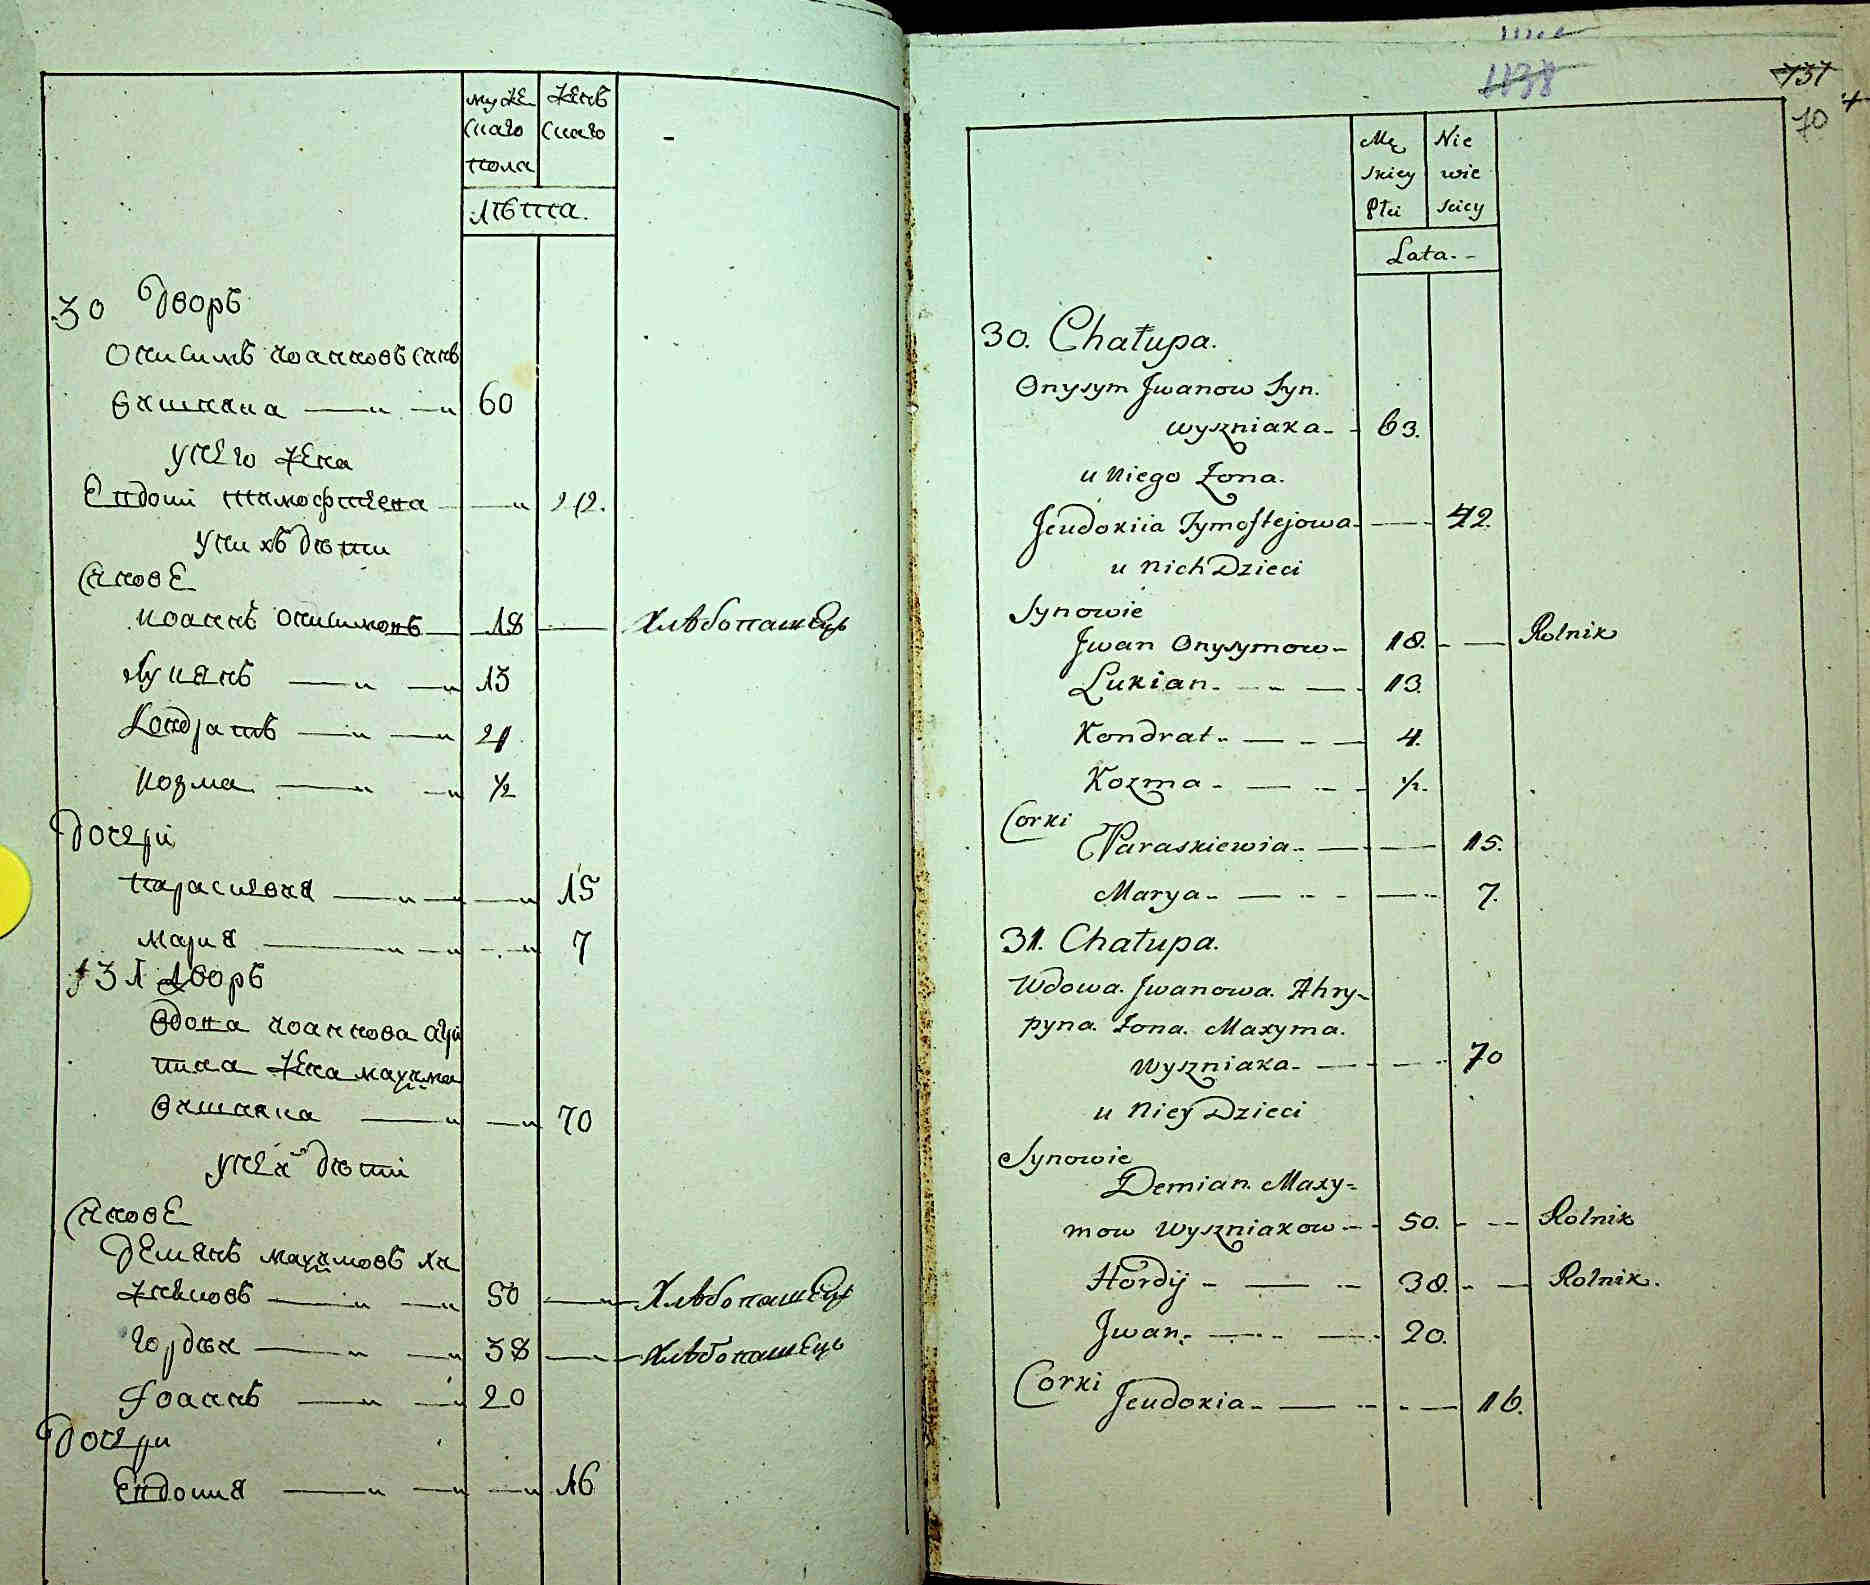 муже
скаго
пола
женъ
скаго
лѣта.
30 Дворъ
Онисимъ Иоанновъ синъ
Вишняка 60
у него жена
Евдокі Тимофиеева 42.
у нихъ дѣти
Синове
Иоаннъ Онисимовъ 18 Хлѣбопашецъ
Лукянъ 13
Кондратъ 4
Козма 1/2
Дочери
Параскевия 15
Мария 7
31 Дворъ
Вдова Иоаннова Агри
пина жена Махима
Вишняка 70
у неи дѣти
Синове
Демянъ Махимовъ
50 Хлѣбопашецъ
Гордѣи 38 Хлѣбопашецъ
Иоаннъ 20
Дочери
Евдокия 16
1138
737
70
Mę
skiey
Płci
Nie
wie
sciey
Lata.
30. Chałupa.
Onysym Jwanow Syn.
Wyszniaka 63.
u Niego Zona.
Jeudokiia Tymoftejowa 42.
u Nich Dzieci
Synowie
Jwan Onysymow 18. Rolnik
Lukian 13.
Kondrat 4.
Kozma 1/2.
Corki
Paraskiewia 15.
Marya 7.
31. Chałupa.
Wdowa. Jwanowa. Ahry-
pyna. Zona. Maxyma.
Wyszniaka 70
u Niey Dzieci
Synowie
Demian. Maxy-
mow Wyszniakow 50. Rolnik
Hordij 38. Rolnik.
Jwan. 20.
Corki
Jeudokia 16.